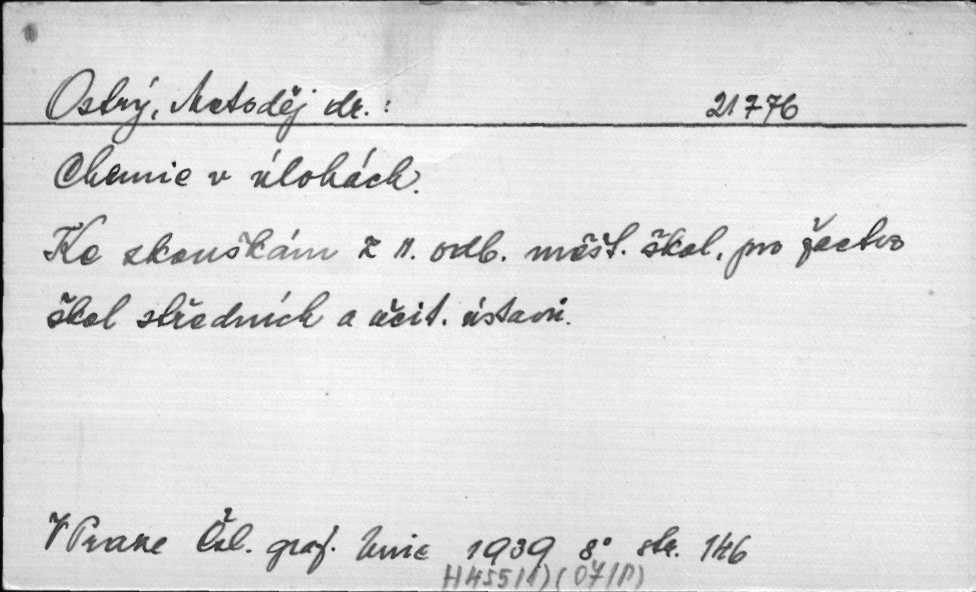 Ostrý, Metoděj dr.: 21776
Chemie v úlohách.
Ke zkouškám z II. odb. měšť. škol, pro žactvo
škol středních a učit. ústavů.
V Praze Čsl. graf. Unie 1939 8° str. 146